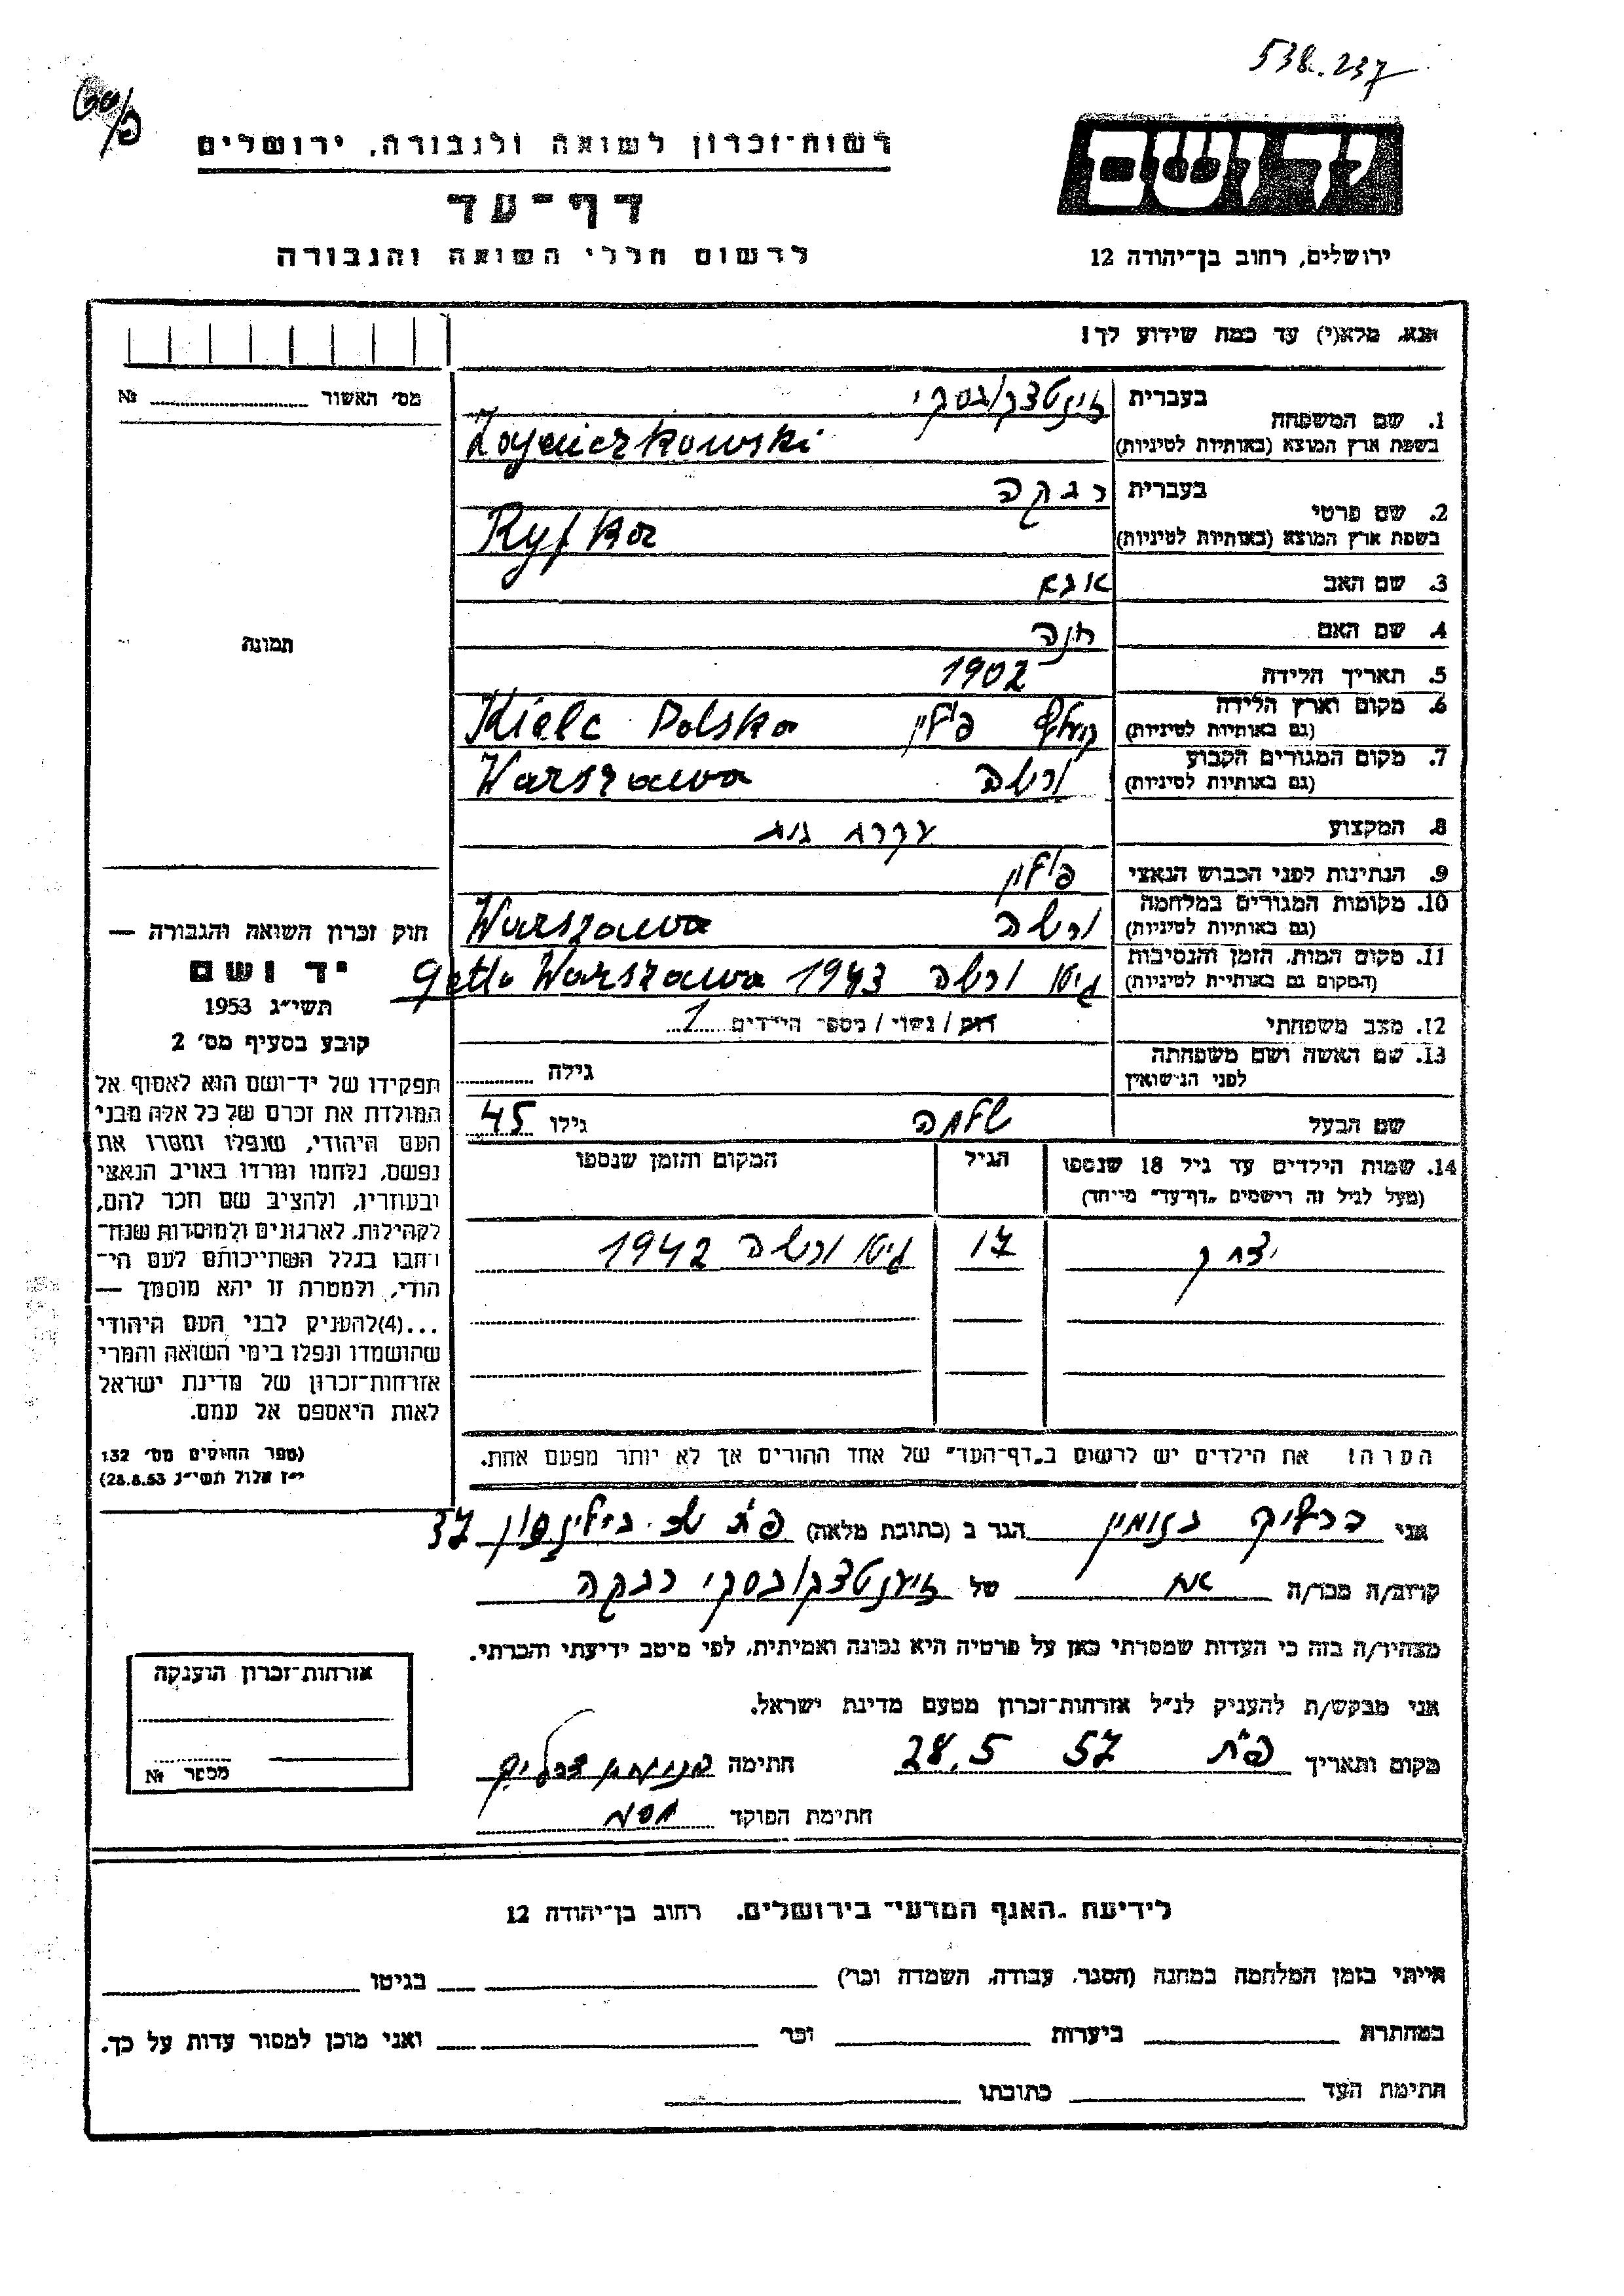 538.237
רשות־זכרון לשואה ולגבורה, ירושלים
יד ושם
דף־עד
לרשום חללי השואה והגבורה
ירושלים, רחוב בן־יהודה 12
נא, מלא(י) עד כמה שידוע לך!
מס׳ האשור № 
1. שם המשפחה בעברית
בשפת ארץ המוצא (באותיות לטיניות)
2. שם פרטי בעברית רבקה
בשפת ארץ המוצא (באותיות לטיניות) Ryfka
3. שם האב אבא
4. שם האם חנה
תמונה
5. תאריך הלידה 1902
6. מקום וארץ הלידה (גם באותיות לטיניות) פולין Kielc Polska
7. מקום המגורים הקבוע (גם באותיות לטיניות) ורשה Warszawa
8. המקצוע עקרת בית
9. הנתינות לפני הכבוש הנאצי פולין
10. מקומות המגורים במלחמה (גם באותיות לטיניות) ורשה Warszawa
11. מקום המות, הזמן והנסיבות (המקום גם באותיות לטיניות) גיטו ורשה 1943 Getto Warszawa
12. מצב משפחתי רווק / נשוי / מספר הילדים 1
13. שם האשה ושם משפחתה לפני הנישואין גילה
שם הבעל שלמה גילו 45
14. שמות הילדים עד גיל 18 שנספו הגיל המקום והזמן שנספו
(מעל לגיל זה רישמים „דף־עד״ מייחד)
יצחק 17 גיטו ורשה 1942
הערה! את הילדים יש לרשום ב„דף־העד״ של אחד ההורים אך לא יותר מפעם אחת.
חוק זכרון השואה והגבורה —
יד ושם
תשי״ג 1953
קובע בסעיף מס׳ 2
תפקידו של יד־ושם הוא לאסוף אל
המולדת את זכרם של כל אלה מבני
העם היהודי, שנפלו ומסרו את
נפשם, נלחמו ומרדו באויב הנאצי
ובעוזריו, ולהציב שם וזכר להם,
לקהילות, לארגונים ולמוסדות שנח־
רבו בגלל השתייכותם לעם הי־
הודי, ולמטרה זו יהא מוסמך —
...(4)להעניק לבני העם היהודי
שהושמדו ונפלו בימי השואה והמרי
אזרחות־זכרון של מדינת ישראל
לאות היאספם אל עמם.
(ספר החוקים מס׳ 132
י״ז אלול תשי״ג 28.8.53)
אני הגר ב (כתובת מלאה) פ״ת 37
קרוב/ה מכר/ה אח של רבקה
מצהיר/ה בזה כי העדות שמסרתי כאן על פרטיה היא נכונה ואמיתית, לפי מיטב ידיעתי והכרתי.
אני מבקש/ת להעניק לנ״ל אזרחות־זכרון מטעם מדינת ישראל.
מקום ותאריך פ״ת 28.5 57 חתימה
חתימת הפוקד
אזרחות־זכרון הוענקה
מספר №
לידיעת „האגף המדעי״ בירושלים, רחוב בן־יהודה 12
הייתי בזמן המלחמה במחנה (הסגר, עבודה, השמדה וכו׳) בגיטו
במחתרת ביערות וכו׳ ואני מוכן למסור עדות על כך.
חתימת העד כתובתו